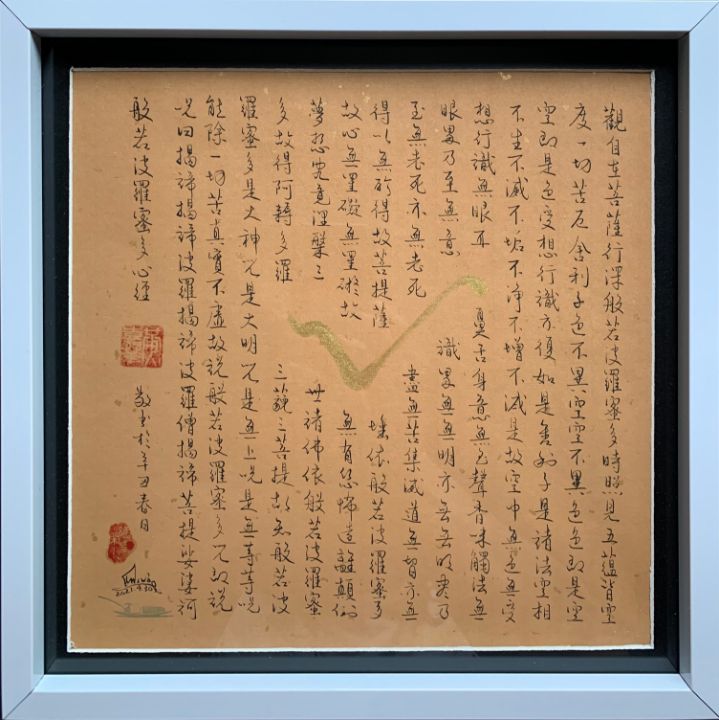 觀自在菩薩行深般若波羅蜜多時照見五蘊皆空
度一切苦厄舍利子色不異空空不異色色即是空
空即是色受想行識亦復如是舍利子是諸法空相
不生不滅不垢不淨不增不減是故空中無色無受
想行識無眼耳 鼻舌身意無色聲香味觸法無
眼界乃至無意 識界無無明亦無無明盡乃
至無老死亦無老死 盡無苦集滅道無智亦無
得以無所得故菩提薩 埵依般若波羅蜜多
故心無罣礙無罣礙故 無有恐怖遠離顛倒
夢想究竟涅槃三 世諸佛依般若波羅蜜
多故得阿耨多羅 三藐三菩提故知般若波
羅蜜多是大神咒是大明咒是無上咒是無等等咒
能除一切苦真實不虛故說般若波羅蜜多咒即說
咒曰揭諦揭諦波羅揭諦波羅僧揭諦菩提娑婆訶
般若波羅蜜多心經
敬書於辛丑春日